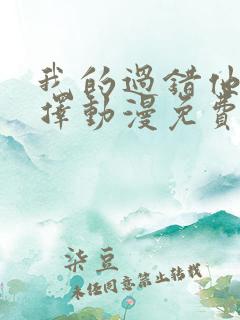 我的過錯他
擇動漫免費
柒豆
未任同意禁止转载